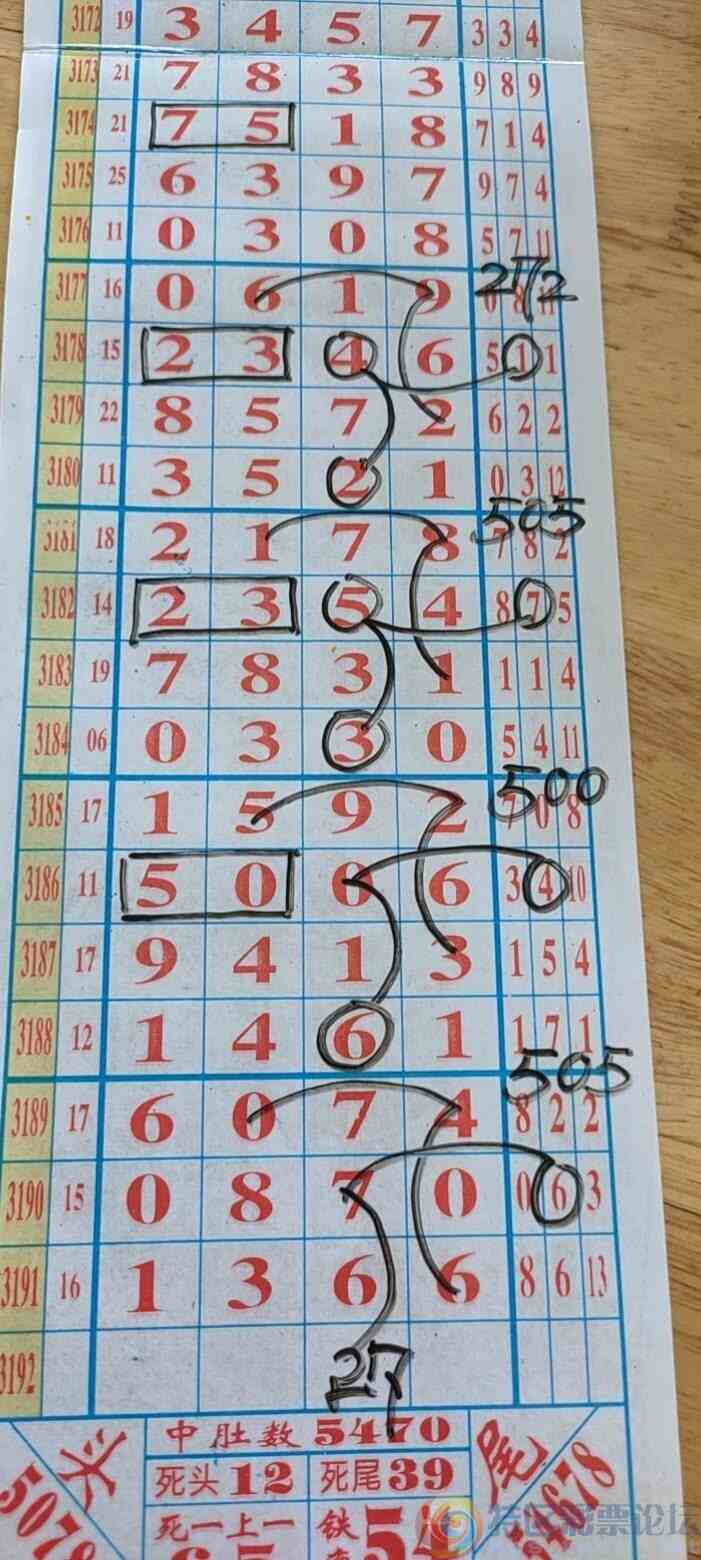 3172 19 3 4 5 7 3 3 4
3173 21 7 8 3 3 9 8 9
3174 21 7 5 1 8 7 1 4
3175 25 6 3 9 7 9 7 4
3176 11 0 3 0 8 5 7 11
3177 16 0 6 1 9
3178 15 2 3 4 6 5 1 1
3179 22 8 5 7 2 6 2 2
3180 11 3 5 2 1 0 3 12
505
3181 18 2 1 7 8 7 8 2
3182 14 2 3 5 4 8 7 5
3183 19 7 8 3 1 1 1 4
3184 06 0 3 3 0 5 4 11
500
3185 17 1 5 9 2 7 0 8
3186 11 5 0 0 6 3 4 10
3187 17 9 4 1 3 1 5 4
3188 12 1 4 6 1 1 7 1
505
3189 17 6 0 7 4 8 2 2
3190 15 0 8 7 0 0 6 3
3191 16 1 3 6 6 8 6 13
3192
27
中肚数 5470
头
死头 12 死尾 39
尾
5078
死一上一
铁
特区彩票论坛